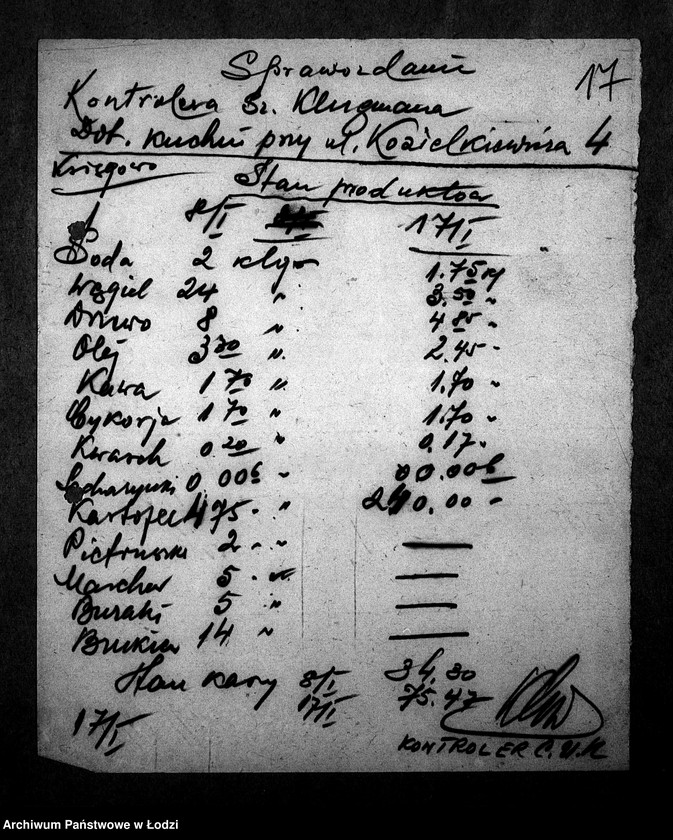 Sprawozdanie 17
Kontrolera Sz. Klugmana
Dot. kuchni przy ul. 4
Księgowo
Stan produktów
8/I 17/I
Soda 2 klgr 1.75 kg
Węgiel 24 " 3.50 "
Drzewo 8 " 4.85 "
Olej 3 30 " 2.45 "
Kawa 1 70 " 1.70 "
Cykorja 1 70 " 1.70 "
Kwasek 0.20 " 0.17 "
Sacharynki 0 006 " 00.006
Kartofel 475 " 240.00 "
Pietruszki 2 " —
Marchew 5 " —
Buraki 5 " —
Brukiew 14 " —
Stan kasy 8/I 34.30
17/I 75.47
17/I
KONTROLER C.U.K
Archiwum Państwowe w Łodzi